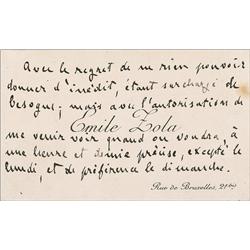 Avec le regret de ne rien pouvoir
donner d'inédit, étant surchargé de
besogne; mais avec l'autorisation de
Emile Zola
me venir voir quand on voudra, à
une heure et demie précise, excepté le
lundi, et de préférence le dimanche.
Rue de Bruxelles, 21bis